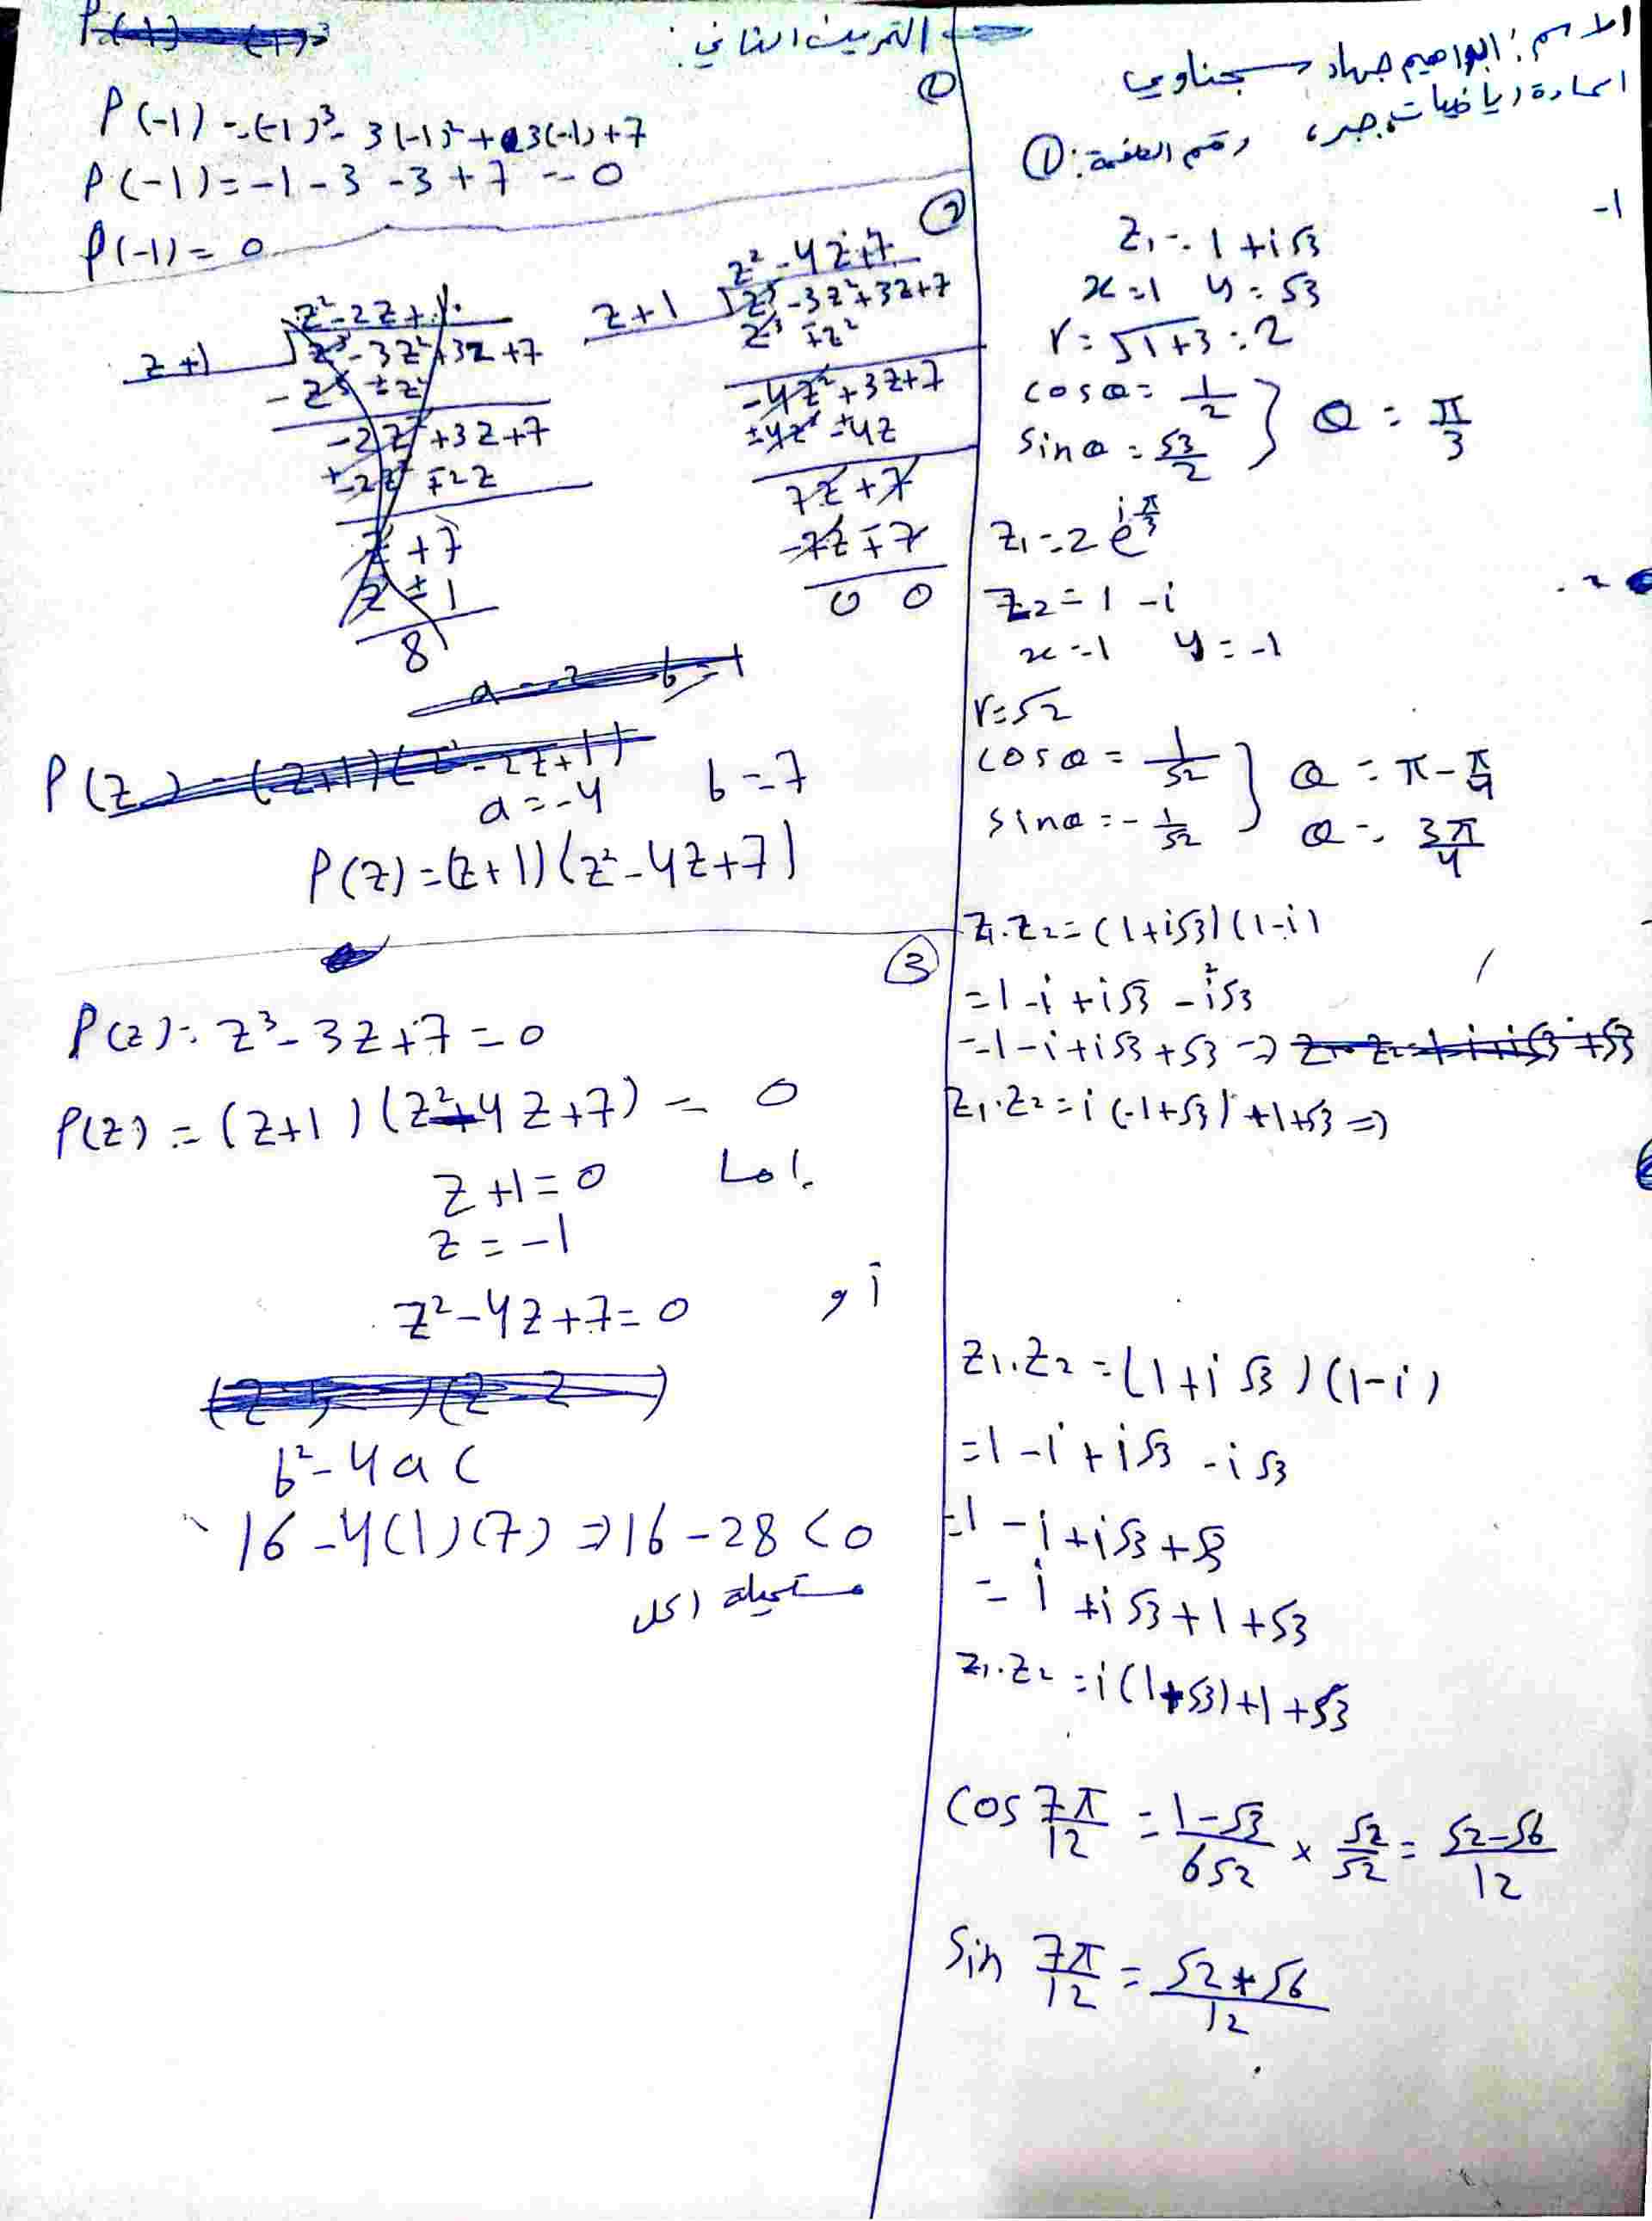 الاسم: ابراهيم جهاد سجناوي
المادة رياضيات جبر، رقم الصفحة: ①
-1
Z₁ = 1 + i√3
x = 1 y = √3
r = √1+3 = 2
cos θ = 1/2 } θ = π/3
sin θ = √3/2
Z₁ = 2 e^(iπ/3)
Z₂ = 1 - i
x = 1 y = -1
r = √2
cos θ = 1/√2 } θ = π - π/4
sin θ = - 1/√2 θ = 3π/4
Z₁.Z₂ = (1+i√3)(1-i)
= 1 - i + i√3 - i²√3
= 1 - i + i√3 + √3 ⇒
Z₁.Z₂ = i(-1+√3) + 1+√3 ⇒
Z₁.Z₂ = (1+i√3)(1-i)
= 1 - i + i√3 - i√3
= 1 - i + i√3 + √3
= i + i√3 + 1 + √3
Z₁.Z₂ = i(1+√3) + 1 + √3
cos 7π/12 = 1-√3/6√2 × √2/√2 = √2-√6/12
sin 7π/12 = √2+√6/12
التمرين الثاني:
①
P(-1) = (-1)³ - 3(-1)² + 3(-1) + 7
P(-1) = -1 - 3 - 3 + 7 = 0
P(-1) = 0
②
z² - 4z + 7
z+1 z³ - 3z² + 3z + 7
z³ ∓ z²
-4z² + 3z + 7
±4z² ± 4z
7z + 7
-7z ∓ 7
0 0
z² - 2z + 1
z+1 z³ - 3z² + 3z + 7
- z³ ± z²
-2z² + 3z + 7
+-2z² ∓ 2z
z + 7
z ± 1
8
a = -2 b = 1
P(z) = (z+1)(z² - 2z + 1)
a = -4 b = 7
P(z) = (z+1)(z² - 4z + 7)
③
P(z) = z³ - 3z + 7 = 0
P(z) = (z+1)(z² - 4z + 7) = 0
إما z + 1 = 0
z = -1
أو z² - 4z + 7 = 0
b² - 4ac
16 - 4(1)(7) ⇒ 16 - 28 < 0
مستحيلة الحل